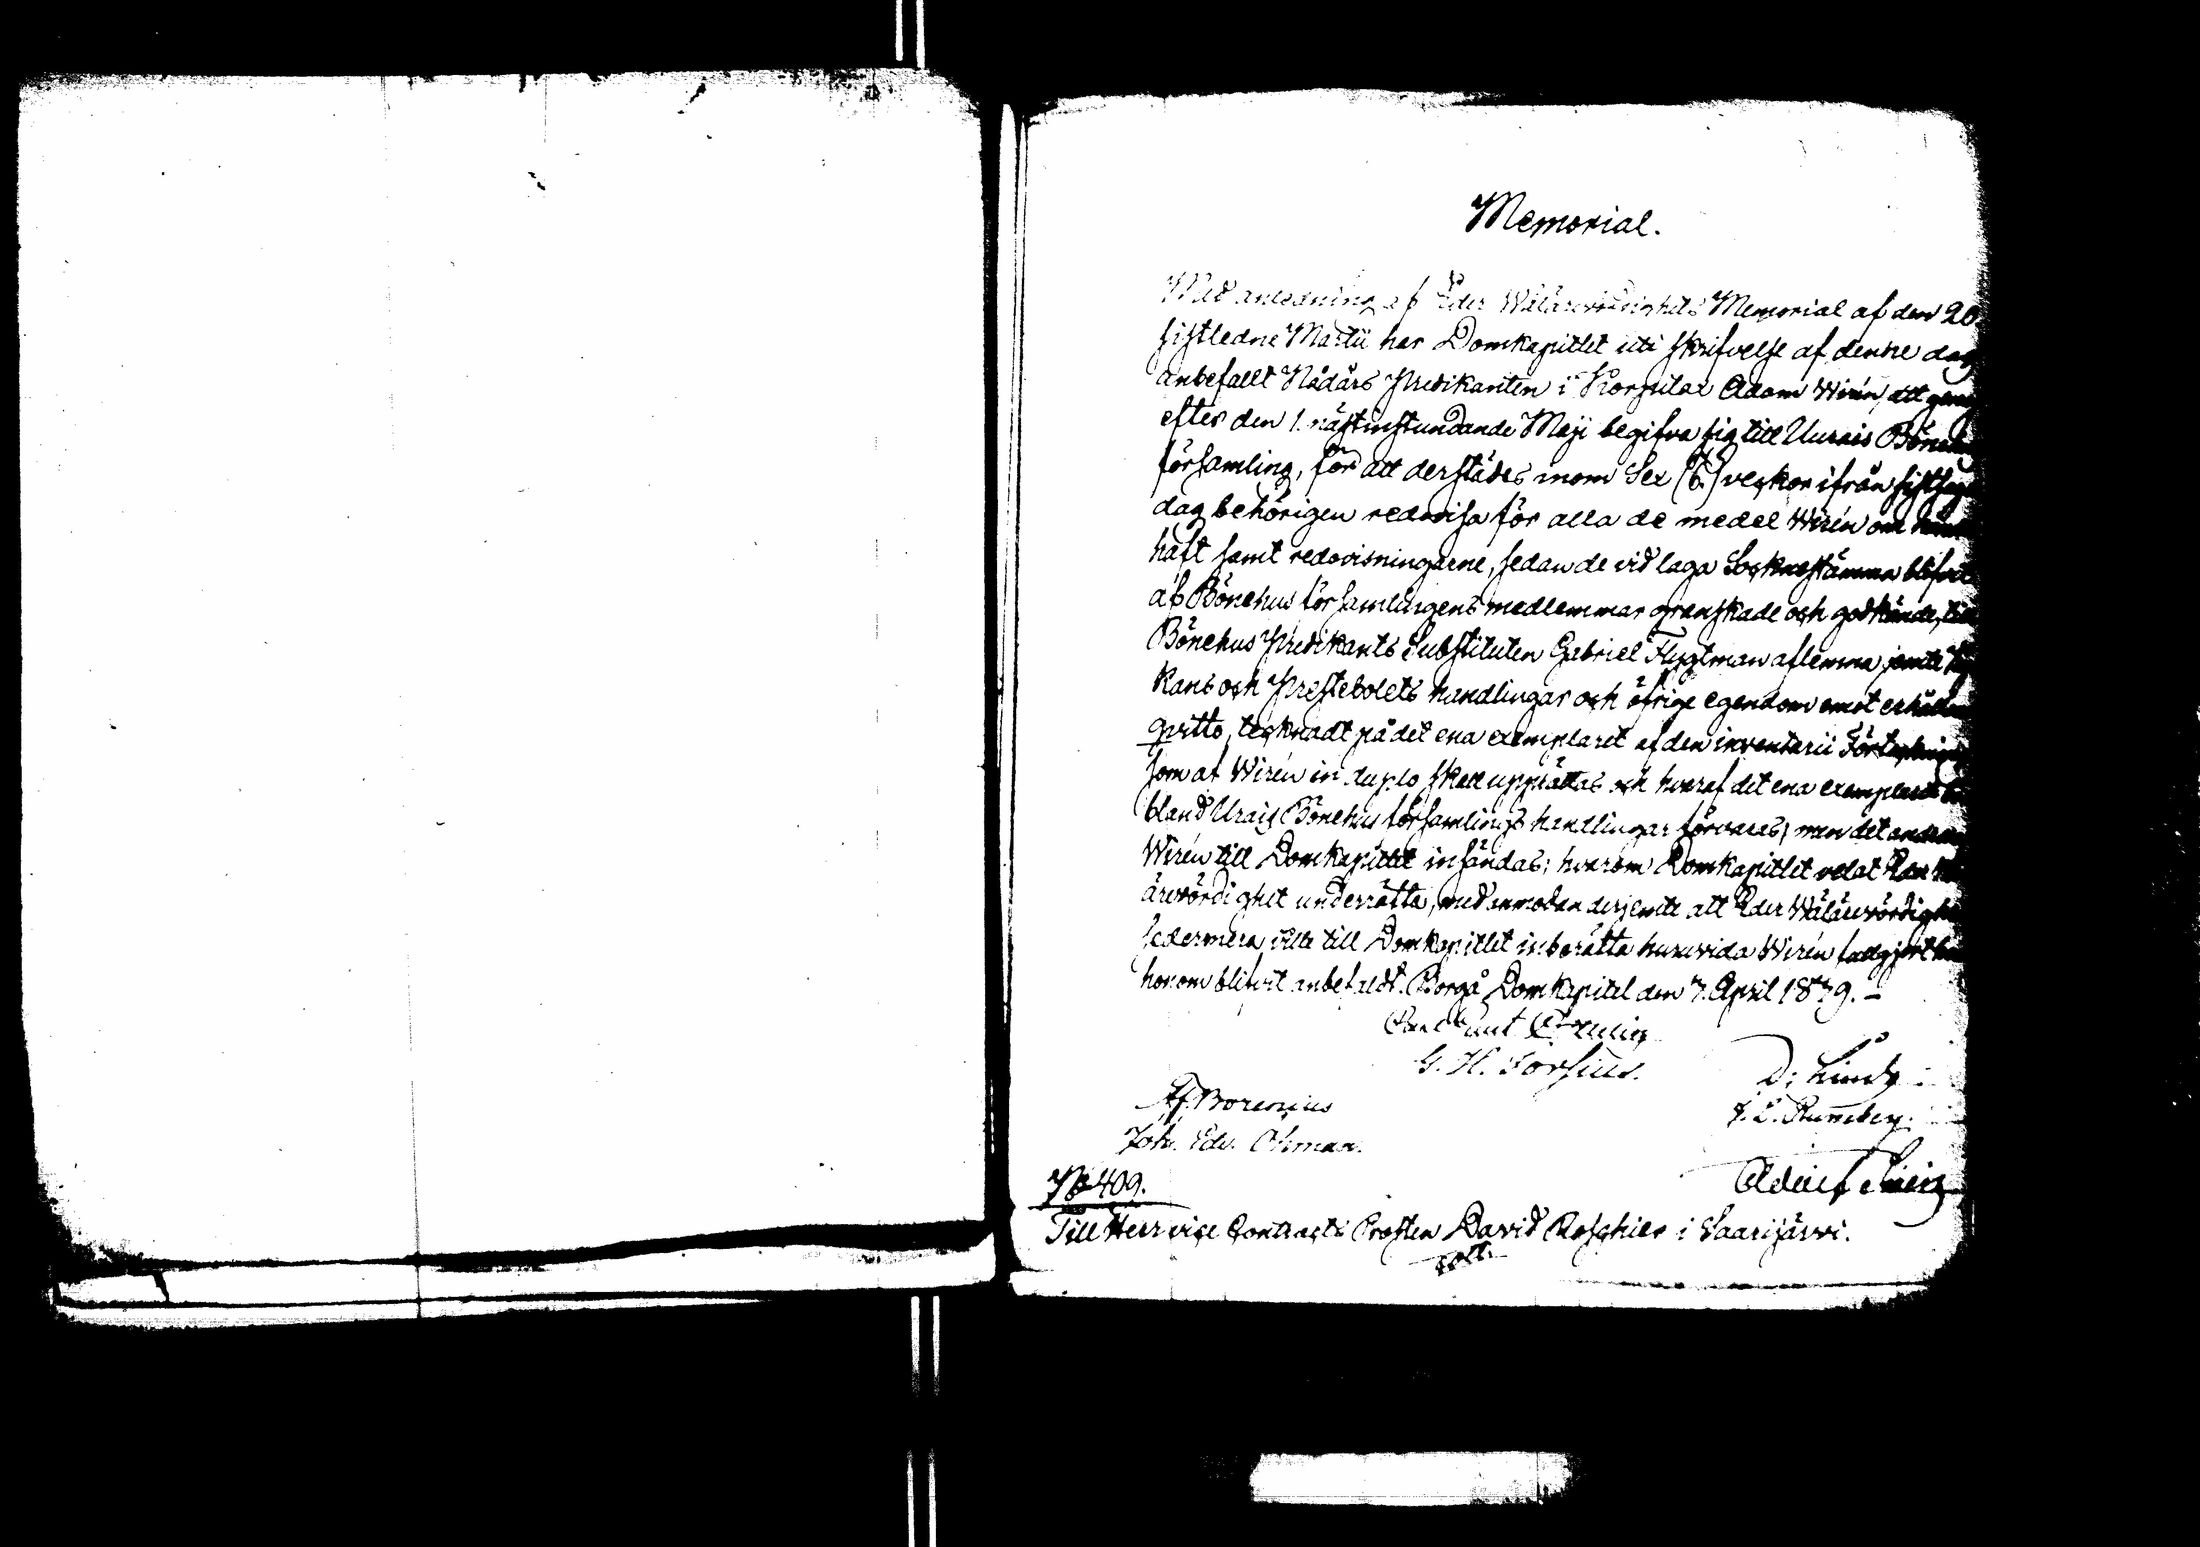 Memorial.
Med anledning af Eder Wälärevördighets Memorial af den 20
sistledne Martii har Domkapitlet uti skrifvelse af denne dag
anbefallt Nådårs Predikanten i Korpilax Adam Wirén, att
efter den 1. nästinstundande Maji begifva sig till Uurais
församling, för att derstädes inom Sex (6.) veckor ifrån
dag behörigen redovisa för alla de medel Wirén om
haft samt redovisningarne, sedan de vid laga Socknestämma blifvit
af Bönehus församlingens medlemmar granskade och godkände, till
Bönehus Predikants Substituten Gabriel Flygtman aflemna jemte
kans och Prestebolets handlingar och öfrige egendom emot
qvitto, tecknadt på det ena exemplaret af den inventarii
som af Wirén in duplo skall upprättas och hvaraf det ena exemplaret
bland Urais Bönehus församlings handlingar förvaras, men det andra
Wirén till Domkapitlet insändas; hvarom Domkapitlet velat
ärevördighet underrätta, med anmodan derjemte att Eder Wälärevördighet
sedermera ville till Domkapitlet inberätta huruvida Wirén
honom blifvit anbefaldt. Borgå Domkapitel den 7. April 1839. –
G. H. Forsius.
Af. Borenius
J. L. Runeberg.
Joh. Edv. Öhman.
No 409.
Till Herr vice Contracts Prosten David Roschier i Saarijärvi.